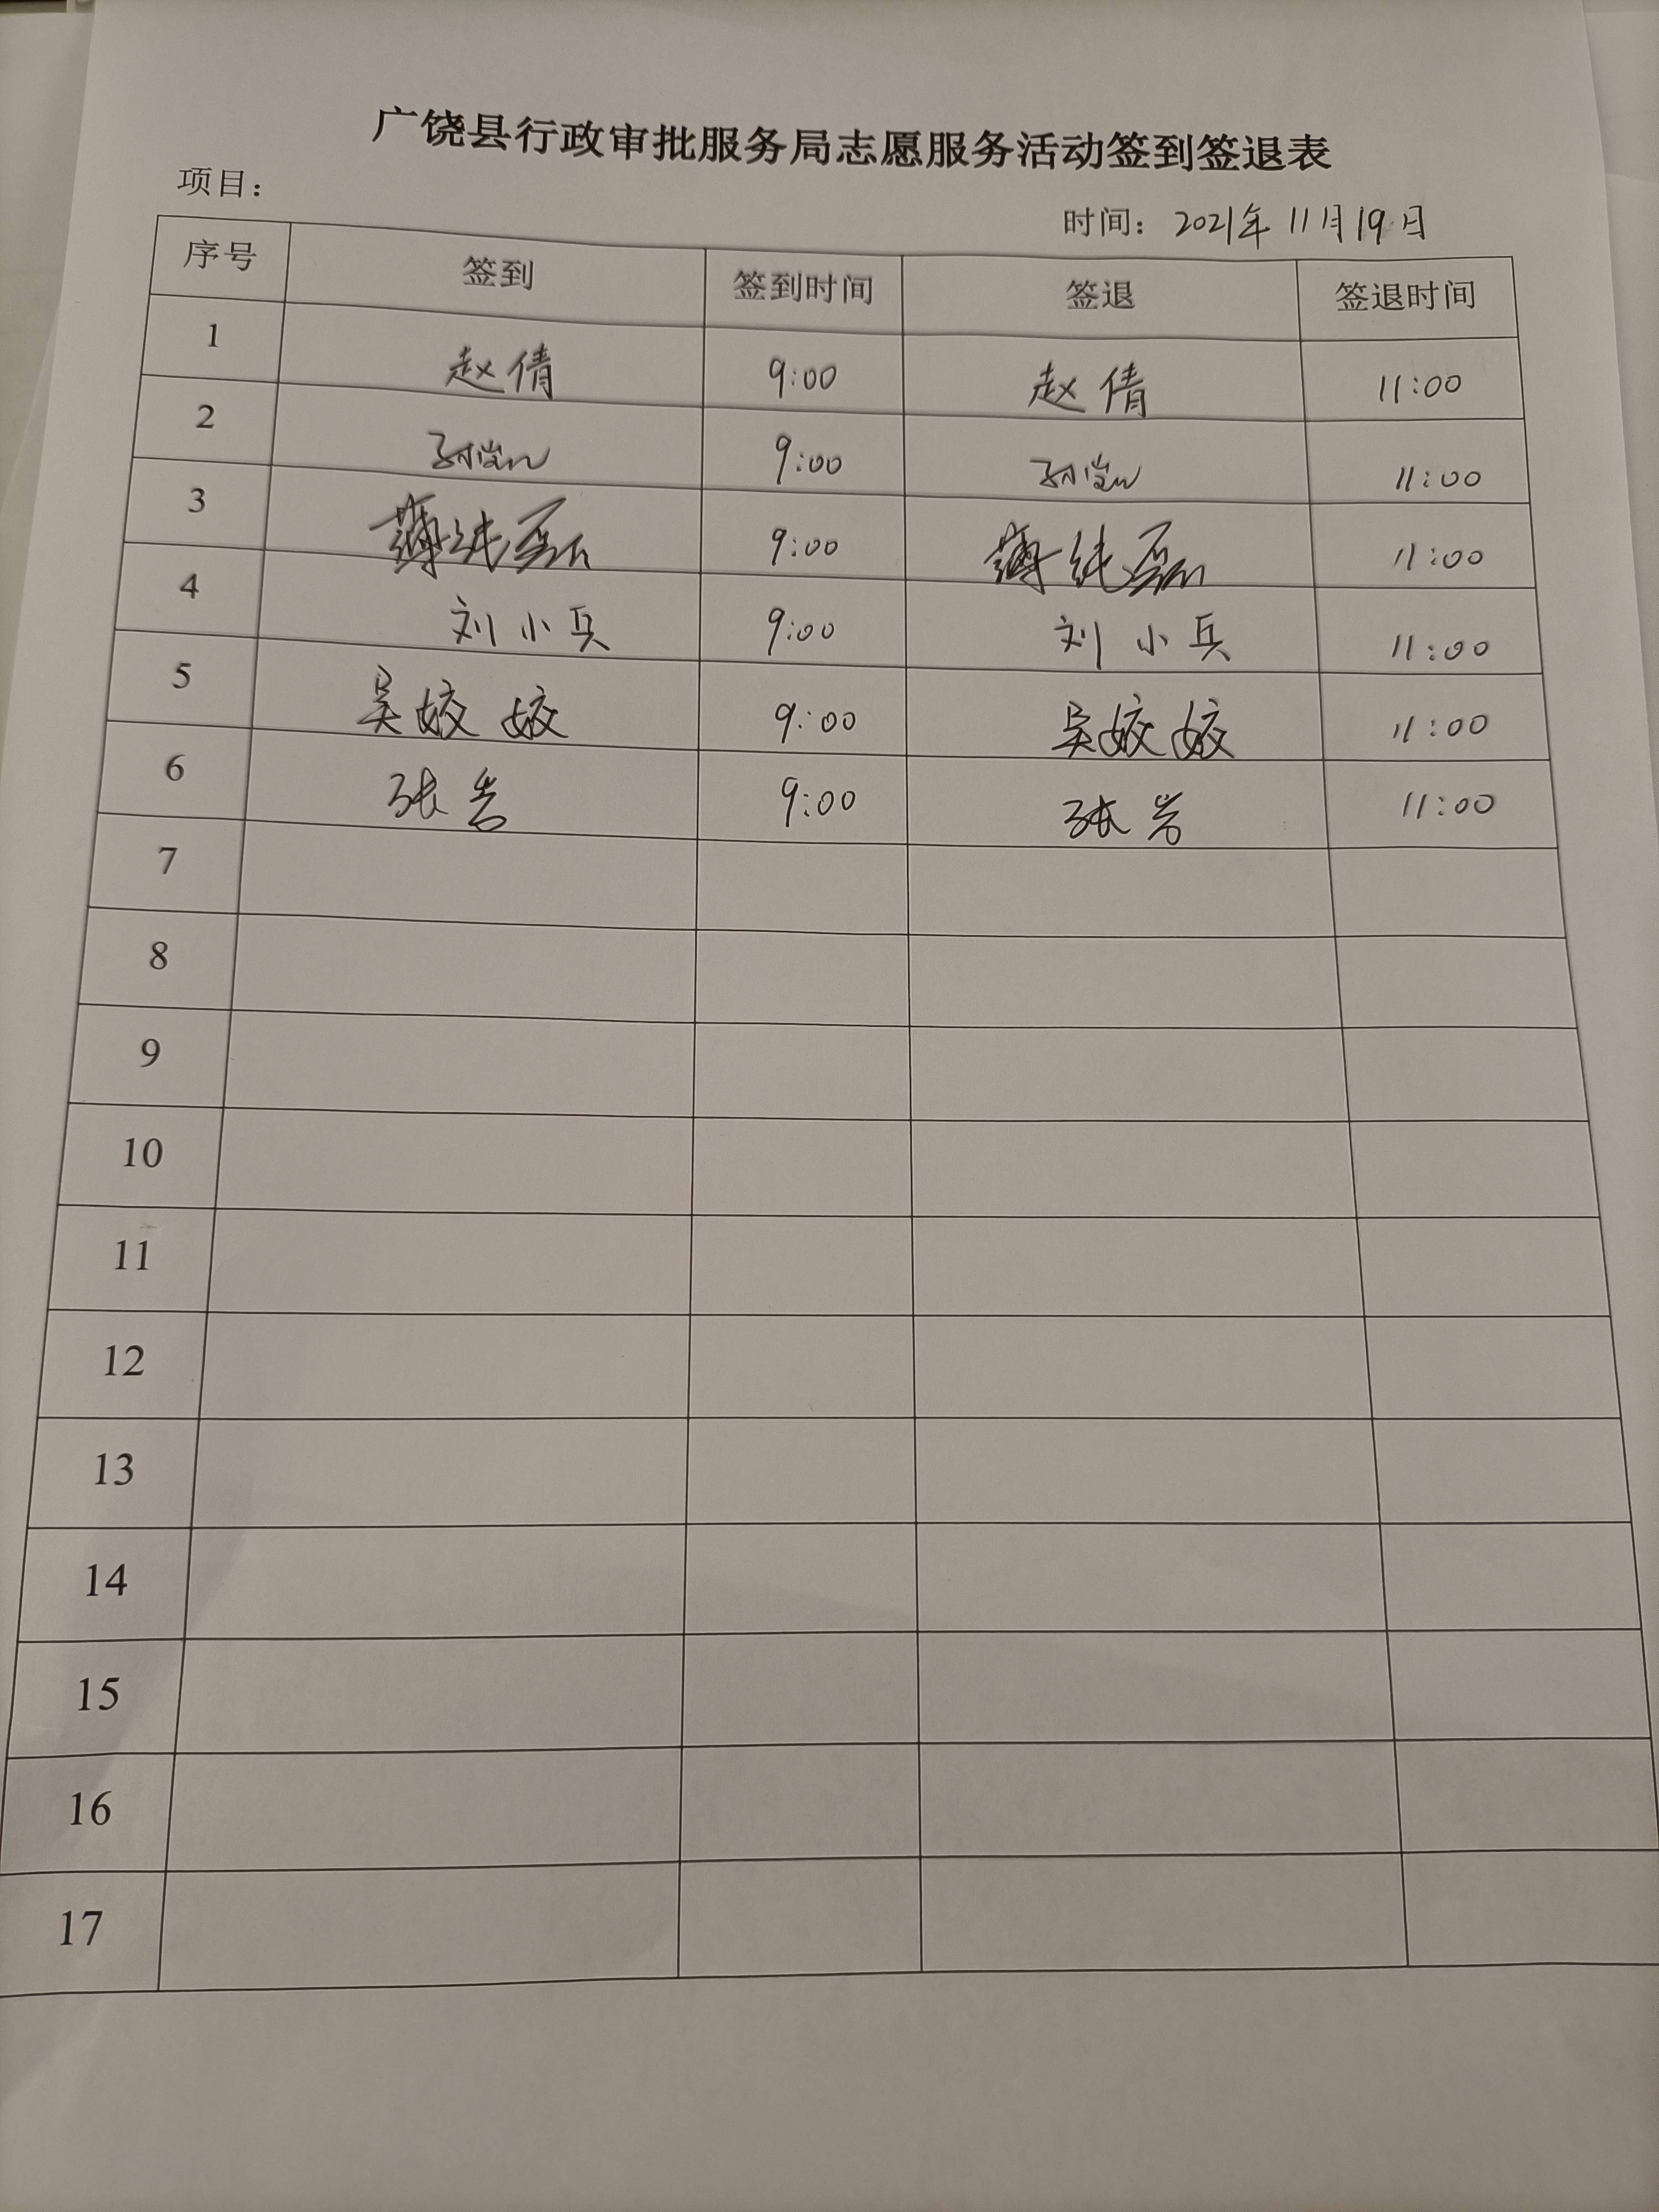 广饶县行政审批服务局志愿服务活动签到签退表
项目：
时间：2021年11月19日
序号 签到 签到时间 签退 签退时间
1 赵倩 9:00 赵倩 11:00
2 9:00 11:00
3 薄纯磊 9:00 薄纯磊 11:00
4 刘小兵 9:00 刘小兵 11:00
5 吴姣姣 9:00 吴姣姣 11:00
6 张岩 9:00 张岩 11:00
7
8
9
10
11
12
13
14
15
16
17